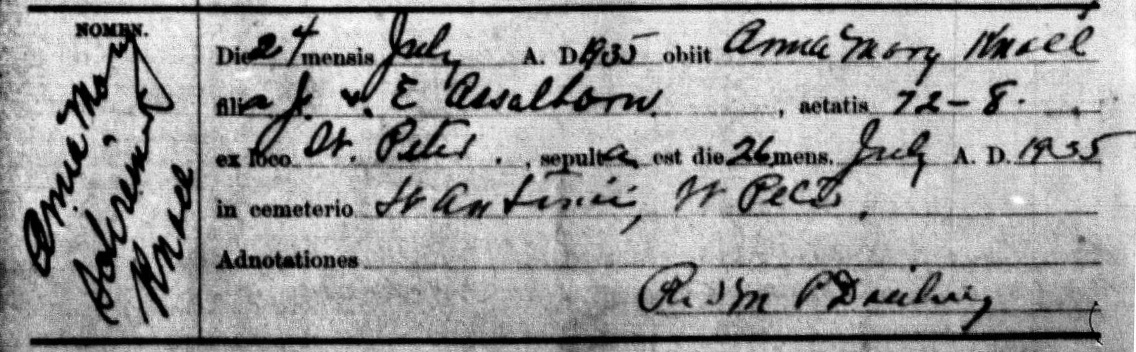 NOMEN.
Anna Mary
Knael
Die 24 mensis July A. D. 1935 obiit Anna Mary Knael
filia J. v. E Assalborn, aetatis 72-8.
ex loco St. Peter., sepulta est die 26 mens. July A. D. 1935
in cemeterio St Antonii, St Peter,
Adnotationes